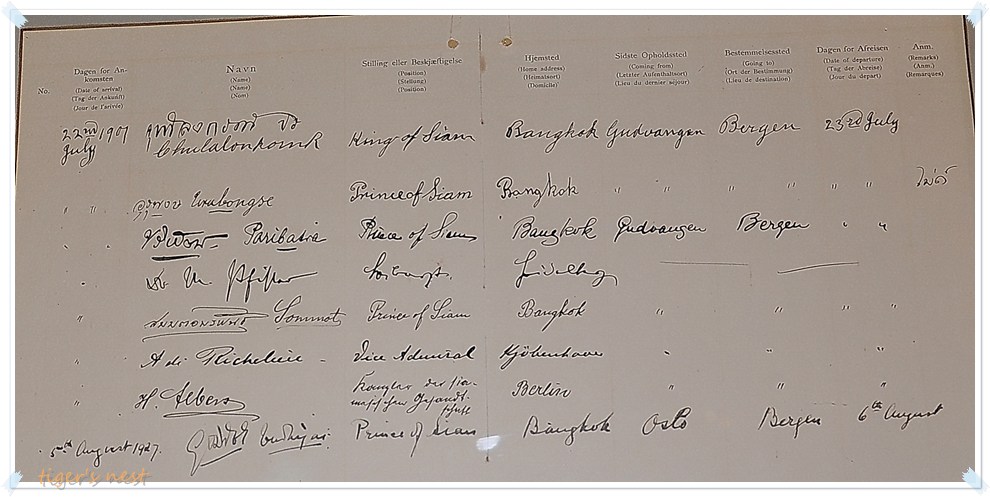 No. Dagen for An-komsten (Date of arrival) (Tag der Ankunft) (Jour de l'arivée) Navn (Name) (Name) (Nom) Stilling eller Beskjæftigelse (Position) (Stellung) (Position) Hjemsted (Home address) (Heimatsort) (Domicile) Sidste Opholdssted (Coming from) (Letzter Aufenthaltsort) (Lieu du dernier séjour) Bestemmelsessted (Going to) (Ort der Bestimmung) (Lieu de destination) Dagen for Afreisen (Date of departure) (Tag der Abreise) (Jour du départ) Anm. (Remarks) (Anm.) (Remarques)
22nd July 1907 จุฬาลงกรณ์ ปร Chulalonkorn R King of Siam Bangkok Gudvangen Bergen 23rd July
" " Urubongse Prince of Siam Bangkok " " " " " ไม่มี
" " Paribatra Prince of Siam Bangkok Gudvangen Bergen " "
"
" Sommot Prince of Siam Bangkok " " " "
" A de Richelieu - Vice Admiral Kjöbenhavn " " "
" H. Albers Kanzler der sia-mesischen Gesandt-schaft Berlin " " "
5th August 1927. Prince of Siam Bangkok Oslo Bergen 6th August
tiger's nest